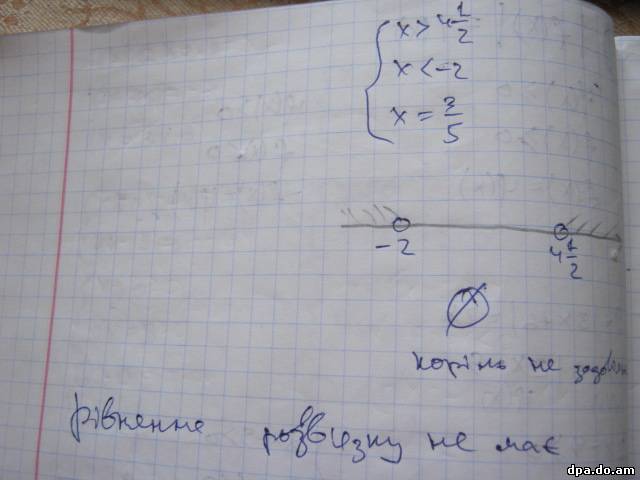 x > 4 1/2
x < -2
x = 3/5
-2
4 1/2
∅
корінь не
рівненне розвізку не має
dpa.do.am